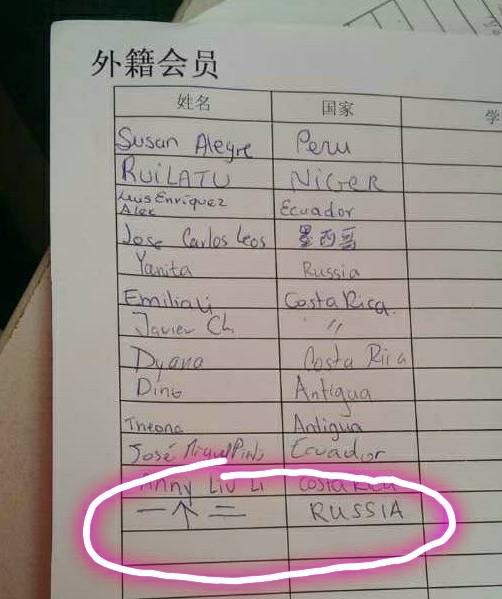 外籍会员
姓名 国家 学
Susan Alegre Peru
RUILATU NiGeR
Luis Enriquez
Alex Ecuador
Jose Carlos Leos 墨西哥
Yanita Russia
Emilia Li Costa Rica.
Javier Ch "
Dyana Costa Rica
Dino Antigua
Theona Antigua
José Miguel Pinto Ecuador
Anny Liu Li Costa Rica
一个二 RUSSIA